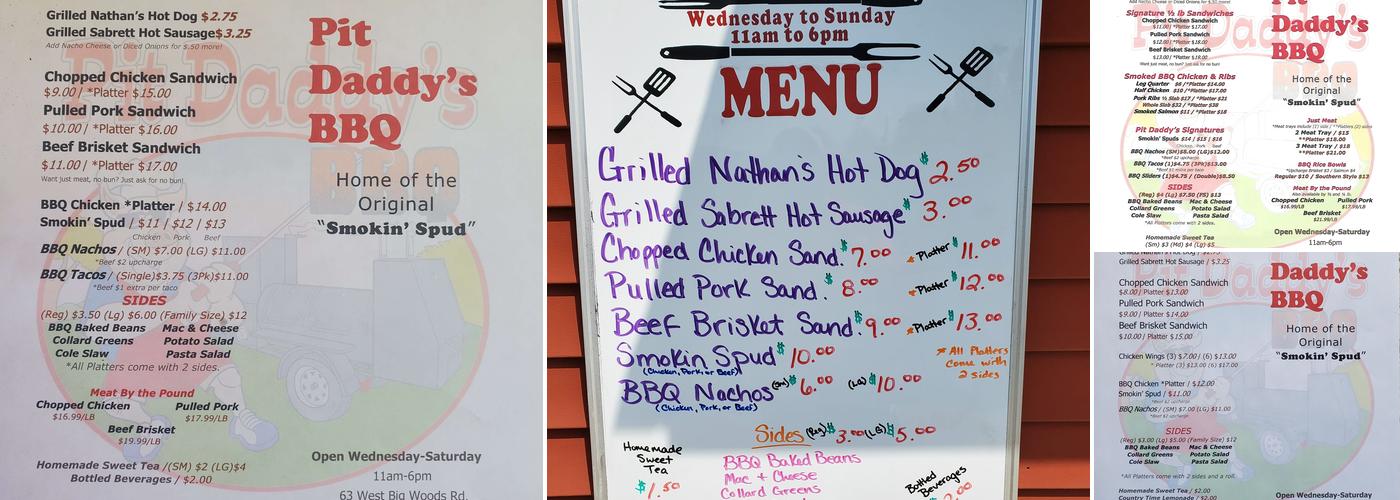 Grilled Nathan's Hot Dog $2.75
Grilled Sabrett Hot Sausage$3.25
Add Nacho Cheese or Diced Onions for $.50 more!
Chopped Chicken Sandwich
$9.00 / *Platter $15.00
Pulled Pork Sandwich
$10.00 / *Platter $16.00
Beef Brisket Sandwich
$11.00 / *Platter $17.00
Want just meat, no bun? Just ask for no bun!
BBQ Chicken *Platter / $14.00
Smokin' Spud / $11 / $12 / $13
Chicken Pork Beef
BBQ Nachos / (SM) $7.00 (LG) $11.00
*Beef $2 upcharge
BBQ Tacos / (Single)$3.75 (3Pk)$11.00
*Beef $1 extra per taco
SIDES
(Reg) $3.50 (Lg) $6.00 (Family Size) $12
BBQ Baked Beans Mac & Cheese
Collard Greens Potato Salad
Cole Slaw Pasta Salad
*All Platters come with 2 sides.
Meat By the Pound
Chopped Chicken Pulled Pork
$16.99/LB $17.99/LB
Beef Brisket
$19.99/LB
Homemade Sweet Tea /(SM) $2 (LG)$4
Bottled Beverages / $2.00
Pit
Daddy's
BBQ
Home of the
Original
"Smokin' Spud"
Open Wednesday-Saturday
11am-6pm
63 West Big Woods Rd.
Wednesday to Sunday
11am to 6pm
MENU
Grilled Nathan's Hot Dog $2.50
Grilled Sabrett Hot Sausage $3.00
Chopped Chicken Sand. $7.00 *Platter $11.00
Pulled Pork Sand. $8.00 *Platter $12.00
Beef Brisket Sand. $9.00 *Platter $13.00
Smokin Spud $10.00
(Chicken, Pork, or Beef)
* All Platters
come with
2 sides
BBQ Nachos (Sm) $6.00 (LG) $10.00
(Chicken, Pork, or Beef)
Sides (Reg) $3.00 (LG) $5.00
Homemade
Sweet
Tea
$1.50
BBQ Baked Beans
Mac + Cheese
Collard Greens
Bottled
Beverages
Signature ½ lb Sandwiches
Chopped Chicken Sandwich
$11.00/ *Platter $17.00
Pulled Pork Sandwich
$12.00/ *Platter $18.00
Beef Brisket Sandwich
$13.00/ *Platter $19.00
Want just meat, no bun? Just ask for no bun!
Smoked BBQ Chicken & Ribs
Leg Quarter $8 /*Platter $14.00
Half Chicken $10 /*Platter $17.00
Pork Ribs ½ Slab $17 / *Platter $21
Whole Slab $32 / *Platter $38
Smoked Salmon $11 / *Platter $18
Pit Daddy's Signatures
Smokin' Spuds $14 / $15 / $16
Chicken Pork beef
BBQ Nachos (SM)$8.00 (LG)$12.00
*Beef $2 upcharge
BBQ Tacos (1)$4.75 (3Pk)$13.00
*Beef $1 extra per taco
BBQ Sliders (1)$4.75 / (Double)$8.50
SIDES
(Reg) $4 (Lg) $7.50 (FS) $13
BBQ Baked Beans Mac & Cheese
Collard Greens Potato Salad
Cole Slaw Pasta Salad
*All Platters come with 2 sides.
Homemade Sweet Tea
(Sm) $3 (Md) $4 (Lg) $5
Daddy's
BBQ
Home of the
Original
"Smokin' Spud"
Just Meat
*Meat trays include (1) side / **Platters (2) sides
2 Meat Tray / $15
**Platter $18.00
3 Meat Tray / $18
**Platter $21.00
BBQ Rice Bowls
*Upcharge Brisket $3 / Salmon $4
Regular $10 / Southern Style $13
Meat By the Pound
Also available by ½ and ¼ lb.
Chopped Chicken Pulled Pork
$16.99/LB $17.99/LB
Beef Brisket
$21.99/LB
Open Wednesday-Saturday
11am-6pm
Grilled Sabrett Hot Sausage / $3.25
Chopped Chicken Sandwich
$8.00/ Platter $13.00
Pulled Pork Sandwich
$9.00 / Platter $14.00
Beef Brisket Sandwich
$10.00 / Platter $15.00
Chicken Wings (3) $7.00 / (6) $13.00
*Platter (3) $13.00 (6) $17.00
BBQ Chicken *Platter / $12.00
Smokin' Spud / $11.00
*Beef $2 upcharge
BBQ Nachos / (SM) $7.00 (LG) $11.00
*Beef $2 upcharge
SIDES
(Reg) $3.00 (Lg) $5.00 (Family Size) $12
BBQ Baked Beans Mac & Cheese
Collard Greens Potato Salad
Cole Slaw Pasta Salad
*All Platters come with 2 sides and a roll.
Homemade Sweet Tea / $2.00
Country Time Lemonade / $2.00
Daddy's
BBQ
Home of the
Original
"Smokin' Spud"
Open Wednesday-Saturday